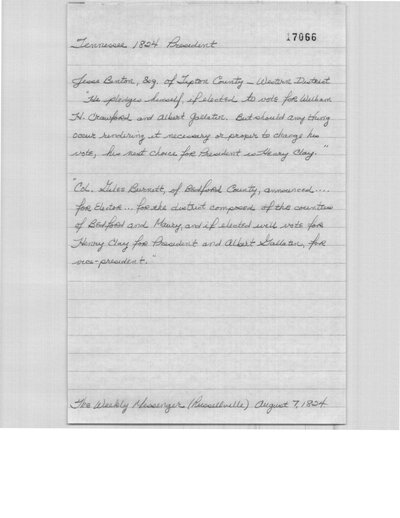 17066
Tennessee 1824 President
Jesse Benton, Esq. of Tipton County - Western District
"He pledges himself, if elected to vote for William
H. Crawford and Albert Gallatin. But should any thing
occur rendering it necessary or proper to change his
vote, his next choice for President is Henry Clay."
"Col. Giles Burnett, of Bedford County, announced....
for Elector... for the district composed of the counties
of Bedford and Maury, and if elected will vote for
Henry Clay for President and Albert Gallatin, for
vice-president."
The Weekly Messenger (Russellville) August 7, 1824